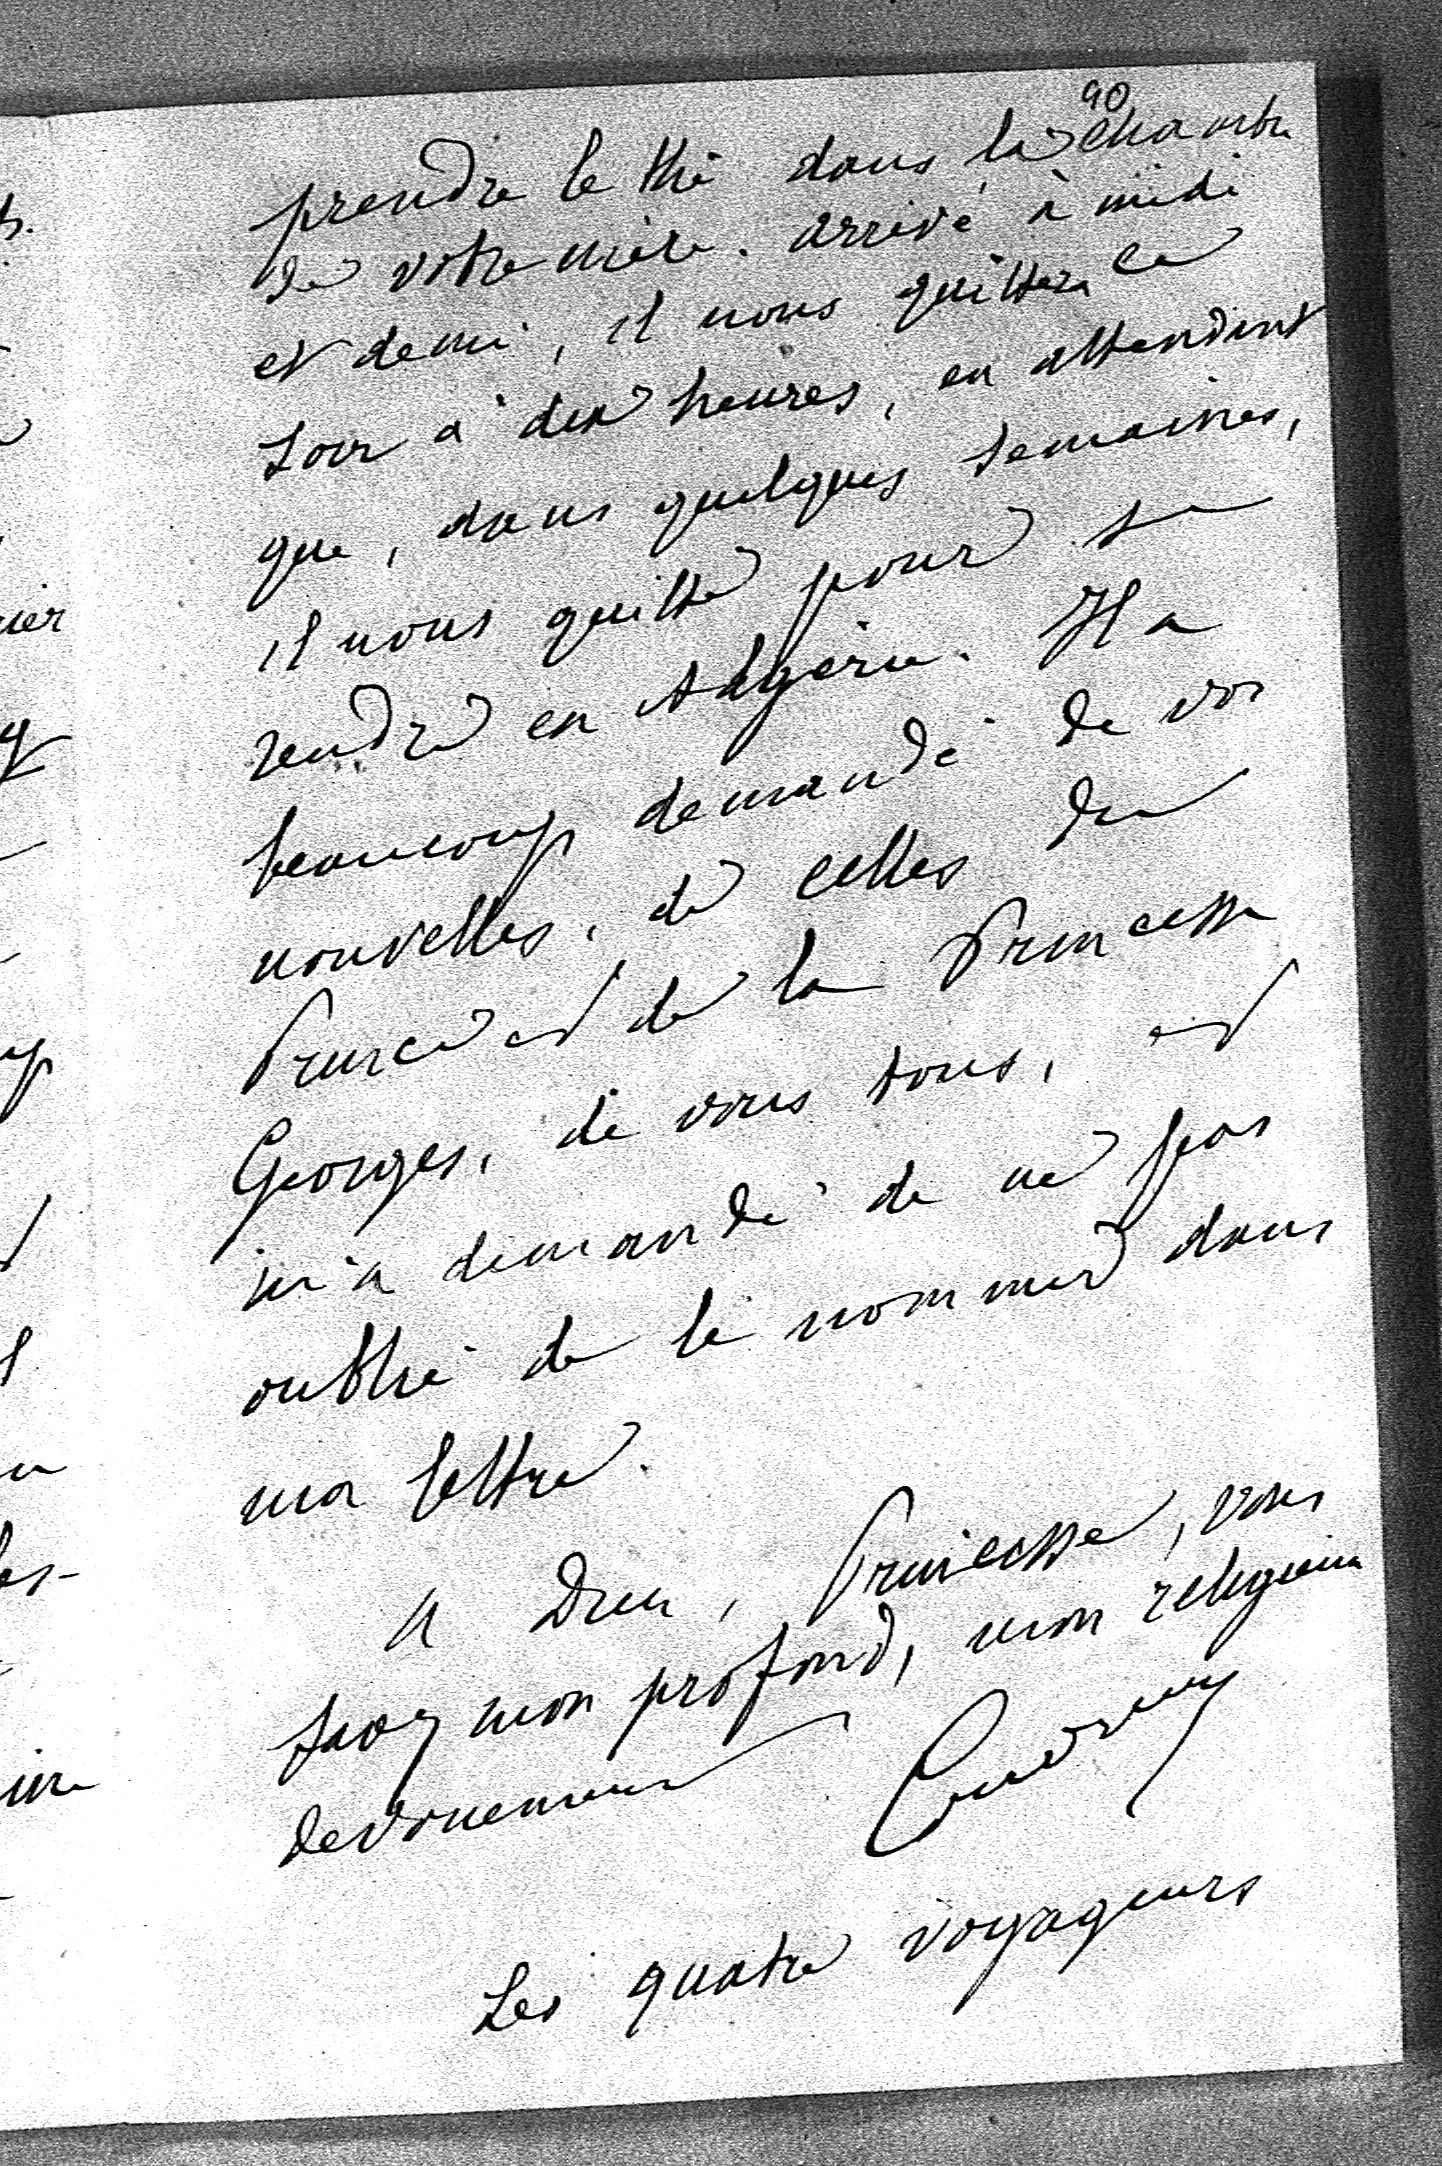 90
prendre le thé dans la chambre
de votre mère. arrivé à midi
et demi, il nous quittera ce
soir à dix heures, en attendant
que, dans quelques semaines,
il nous quitte pour se
rendre en Algérie. Il a
beaucoup demandé de vos
nouvelles, de celles du
Prince et de la Princesse
Georges, de vous tous, et
m'a demandé de ne pas
oublié de le nommer dans
ma lettre.
A Dieu, Princesse, vous
savez mon profond, mon religieux
devouement
Les quatre voyageurs